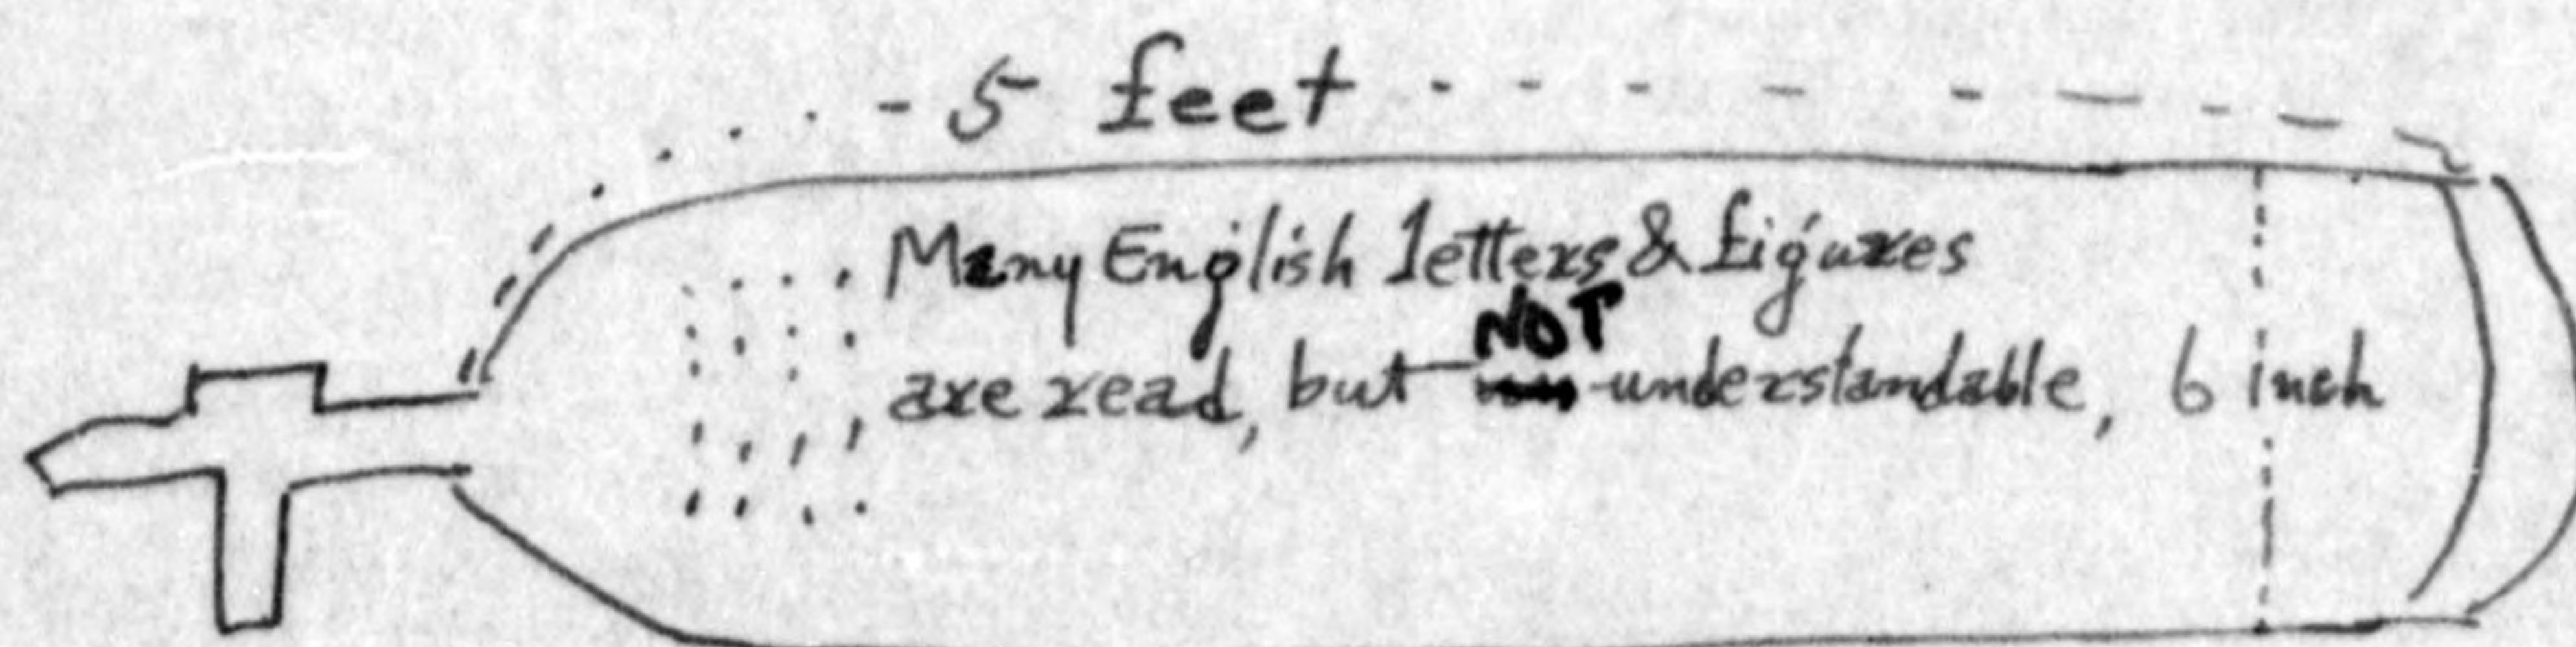 5 feet
Many English letters & figures
NOT
are read, but understandable, 6 inch